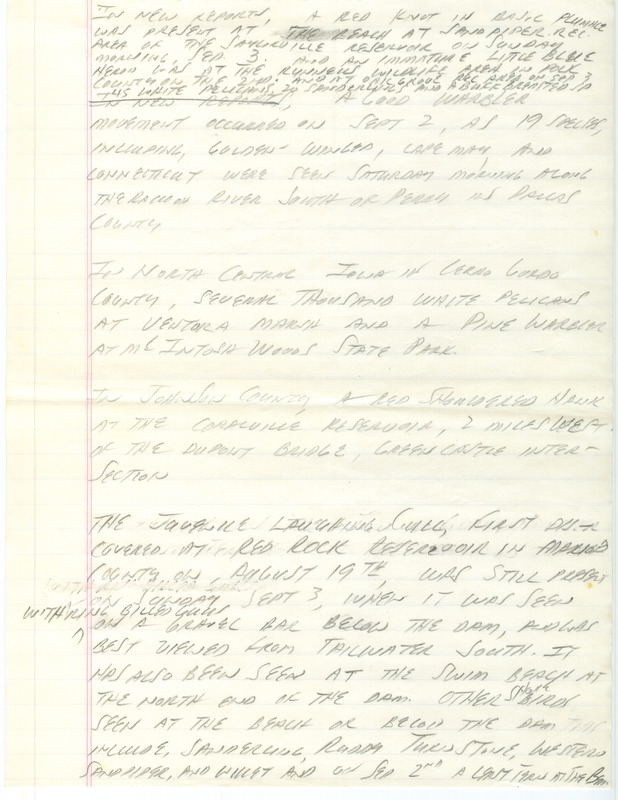 IN NEW REPORTS, A RED KNOT IN BASIC PLUMAGE
WAS PRESENT AT THE BEACH AT SANDPIPER REC.
AREA OF THE SAYLORVILLE RESERVOIR ON SUNDAY
MORNING, SEP. 3. AND AN IMMATURE LITTLE BLUE
HERON WAS AT THE RUNNELLS WILDLIFE AREA IN POLK
COUNTY ON THE 2ND. AND AT REC AREA ON SEP 3
WHITE PELICANS, 20 SANDERLINGS AND A BUFF BREASTED SP
IN NEW REPORTS, A GOOD WARBLER
MOVEMENT OCCURRED ON SEPT 2, AS 19 SPECIES,
INCLUDING, GOLDEN-WINGED, CAPE MAY, AND
CONNECTICUT WERE SEEN SATURDAY MORNING ALONG
THE RACCOON RIVER SOUTH OF PERRY IN DALLAS
COUNTY
IN NORTH CENTRAL IOWA IN CERRO GORDO
COUNTY, SEVERAL THOUSAND WHITE PELICANS
AT VENTURA MARSH AND A PINE WARBLER
AT McINTOSH WOODS STATE PARK.
IN JOHNSON COUNTY, A RED SHOULDERED HAWK
AT THE CORALVILLE RESERVOIR, 2 MILES WEST
OF THE DUPONT BRIDGE, GREENCASTLE INTER-
SECTION
THE JUVENILE LAUGHING GULL, FIRST DIS-
COVERED AT RED ROCK RESERVOIR IN MARION
COUNTY ON, AUGUST 19TH, WAS STILL PRESENT
ON SUNDAY SEPT 3, WHEN IT WAS SEEN
WITH RING BILLED GULLS
ON A GRAVEL BAR BELOW THE DAM, AND WAS
BEST VIEWED FROM TAILWATER SOUTH. IT
HAS ALSO BEEN SEEN AT THE SWIM BEACH AT
THE NORTH END OF THE DAM. OTHER SHORE BIRDS
SEEN AT THE BEACH OR BELOW THE DAM THIS
INCLUDE, SANDERLING, RUDDY TURNSTONE, WESTERN
SANDPIPER, AND WILLET AND ON SEP 2ND A LEAST TERN AT THE